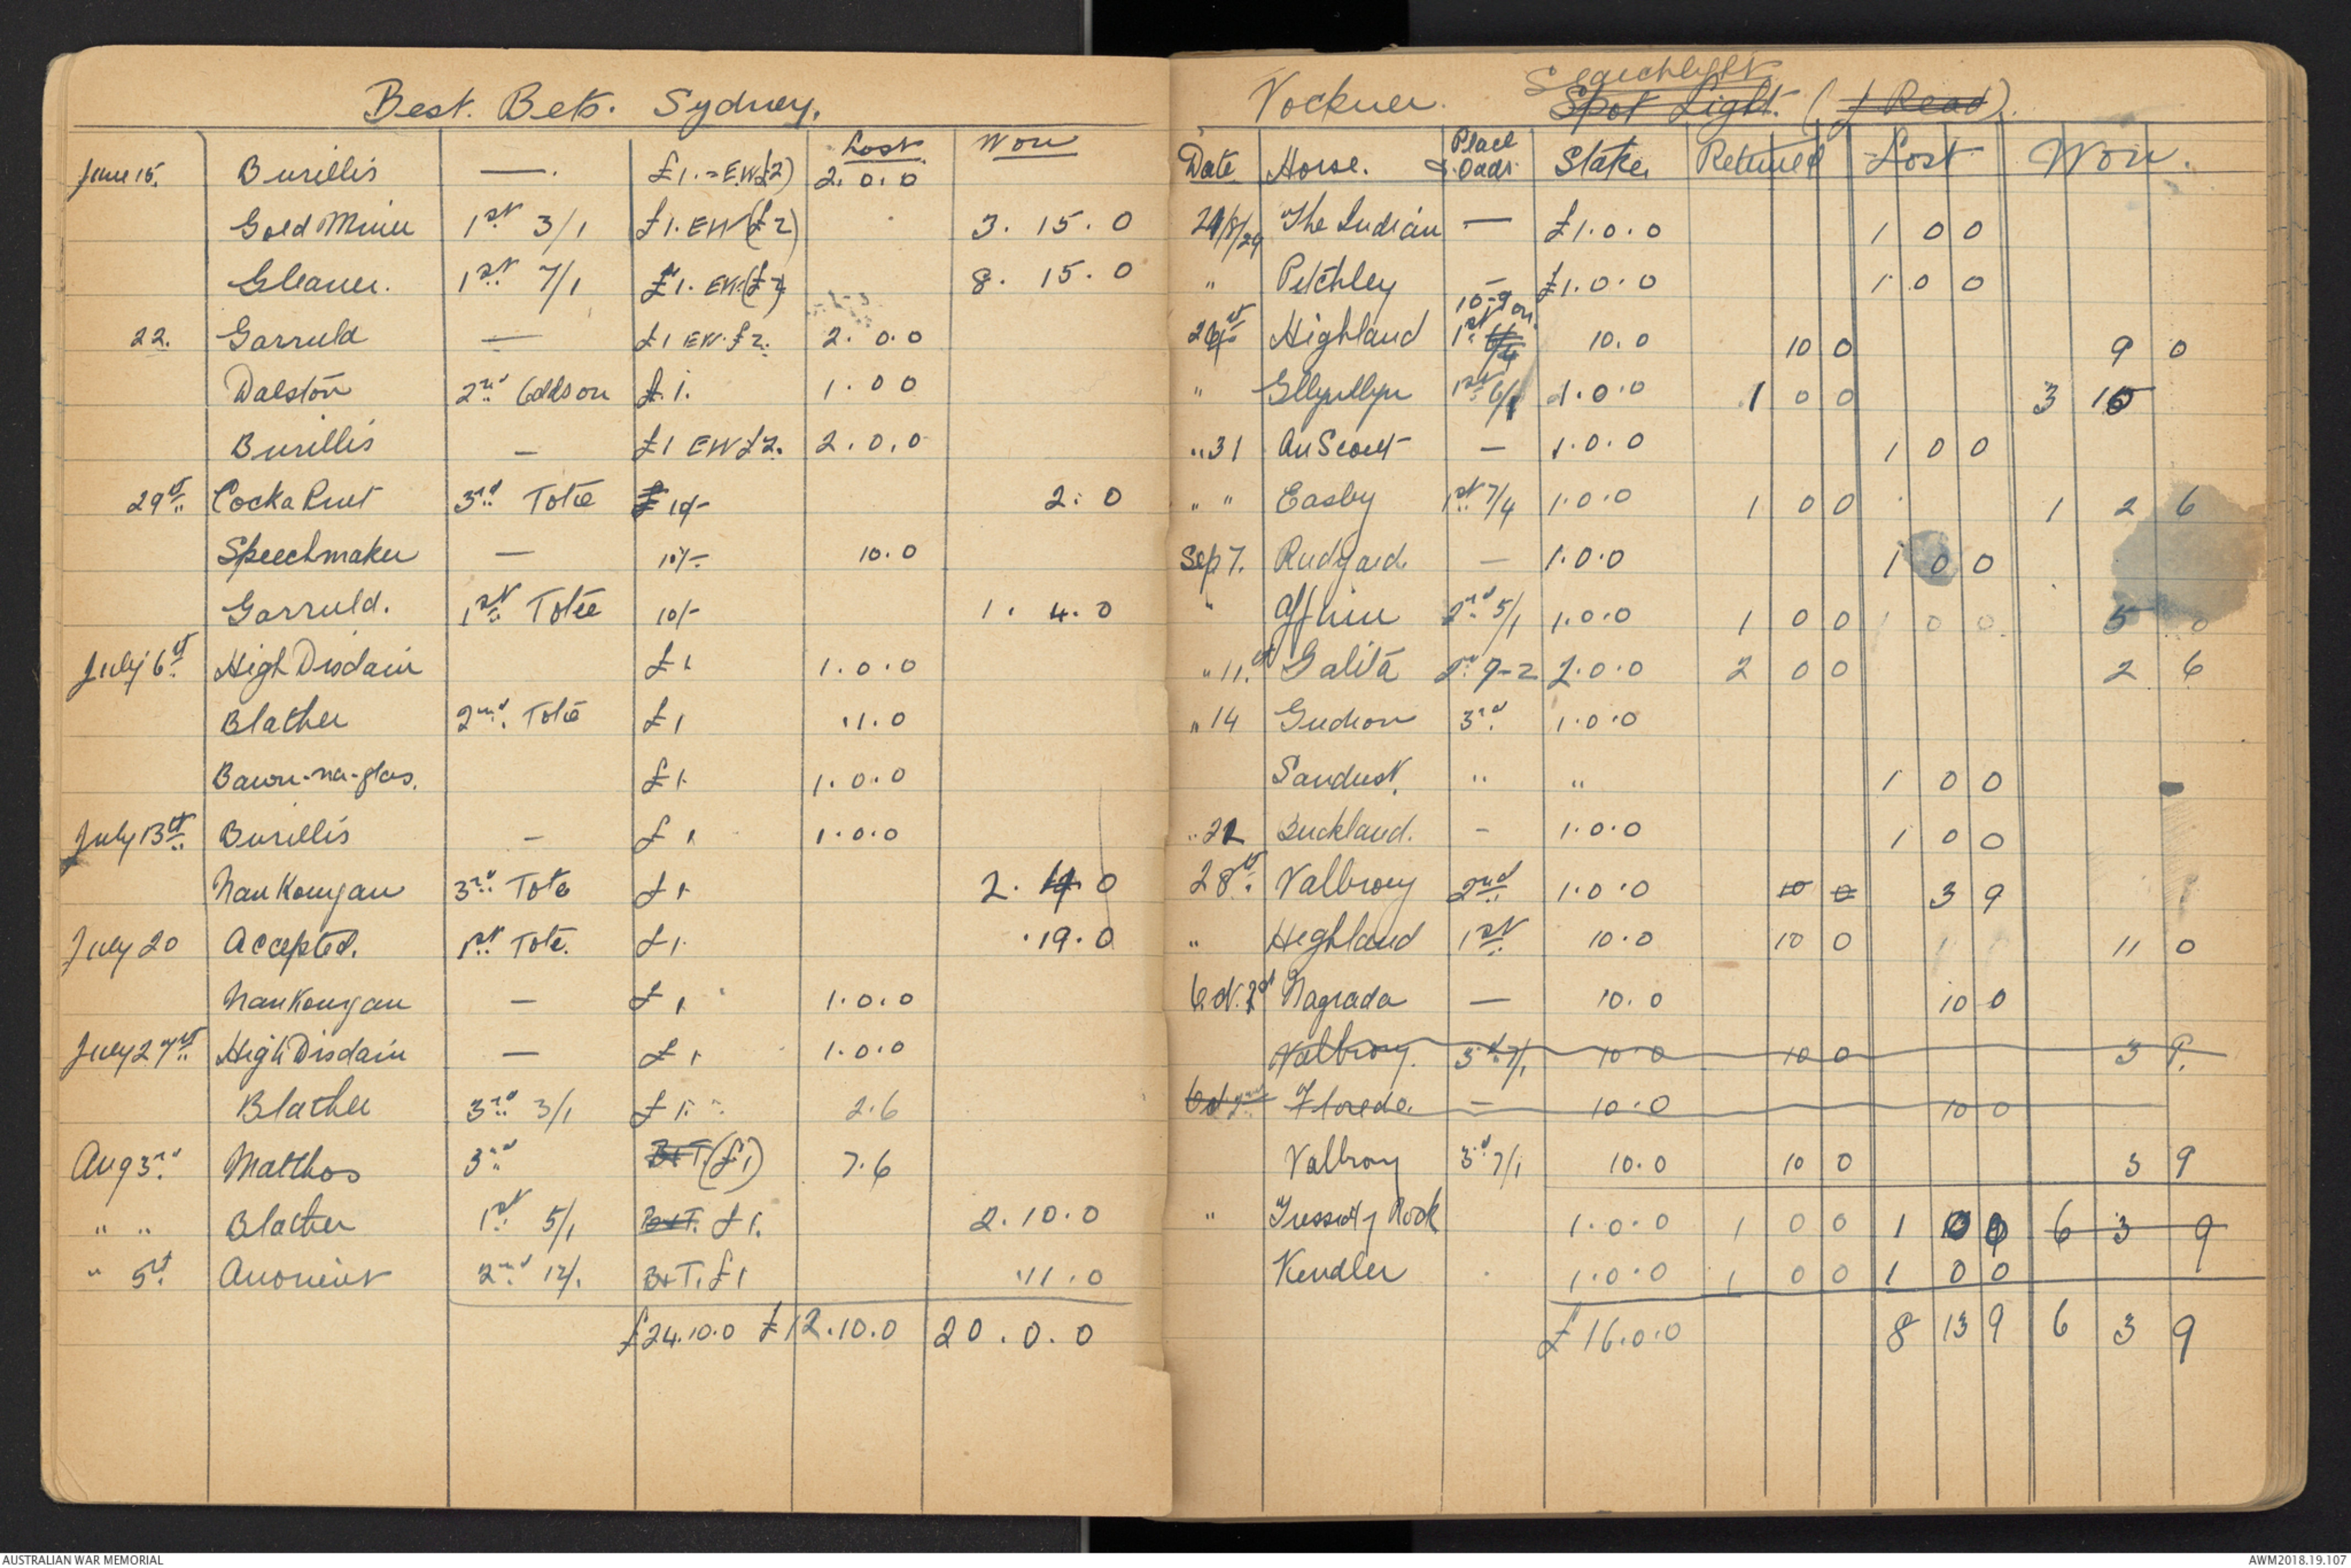 Best. Bets. Sydney.
Lost Won
June 15. Burillis — . £1.=E.W(£2) 2. 0. 0
Gold Miner 1st 3/1 £1. EW (£2) 3. 15. 0
Gleaner. 1st 7/1 £1. EW.(£2) 8. 15. 0
22. Garruld — £1 EW. £2. 2. 0. 0
Dalston 2nd Odds on £.1. 1. 0 0
Burillis — £1 EW £2. 2. 0. 0
29th Cocka Ruet 3rd Tote £ 10/- 2. 0
Speechmaker — 10/- 10. 0
Garruld. 1st Tote 10/- 1. 4. 0
July 6th High Disdain £1 1. 0. 0
Blather 2nd Tote £1 11. 0
Bawn-na-glas. £1. 1. 0. 0
July 13th Burillis — £1 1. 0. 0
Nan Kouyan 3rd Tote £1 2. 0
July 20 Accepted. 1st Tote. £1. 19. 0
Nan Kouyan — £1 1. 0. 0
July 27th High Disdain — £1 1. 0. 0
Blather 3rd 3/1 £1. 2. 6
Aug 3rd Matthos 3rd B+T. (£1) 7. 6
" " Blather 1st 5/1 B+T. £1. 2. 10. 0
" 5th 2nd 12/1. B+T. £1 11. 0
£24.10.0 £12.10.0 20. 0. 0
Vockner. Searchlight
Spot Light. (J Read).
Date Horse. Place & Odds. Stake Returned Lost Won.
/8/29 The Indian — £1. 0. 0 1 0 0
" Pitchley — £1. 0. 0 1 0 0
10-9 on.
Highland 1st 10. 0 10 0 9 0
" Gllyrllyn 1st 6/ 1. 0. 0 1 0 0 3 15
" 31 Au Scout — 1. 0. 0 1 0 0
" " Easby 1st 7/4 1. 0. 0 1 0 0 1 2 6
Sep 7. Rudyard. — 1. 0. 0 1 0 0
" Affirm 2nd 5/1 1. 0. 0 1 0 0 1 0 0 5 0
" 11th Galita 2nd 9-2 2. 0. 0 2 0 0 2 6
" 14 Gudion 3rd 1. 0. 0
Sandust. " " 1 0 0
" 21 Buckland. — 1. 0. 0 1 0 0
28th. Valbrony 2nd 1. 0. 0 10 0 3 9
" Highland 1st 10. 0 10 0 11 0
Oct. 2d Nagrada — 10. 0 10 0
Valbrony. 3rd 7/1 10. 0 10 0 3 9.
Oct 2nd Floreda. — 10. 0 10 0
Valbrony 3rd 7/1 10. 0 10 0 3 9
" Rock 1. 0. 0 1 0 0 1 0 0 6 3 9
Kendler 1. 0. 0 1 0 0 1 0 0
£16. 0. 0 8 13 9 6 3 9
AUSTRALIAN WAR MEMORIAL
AWM2018.19.107